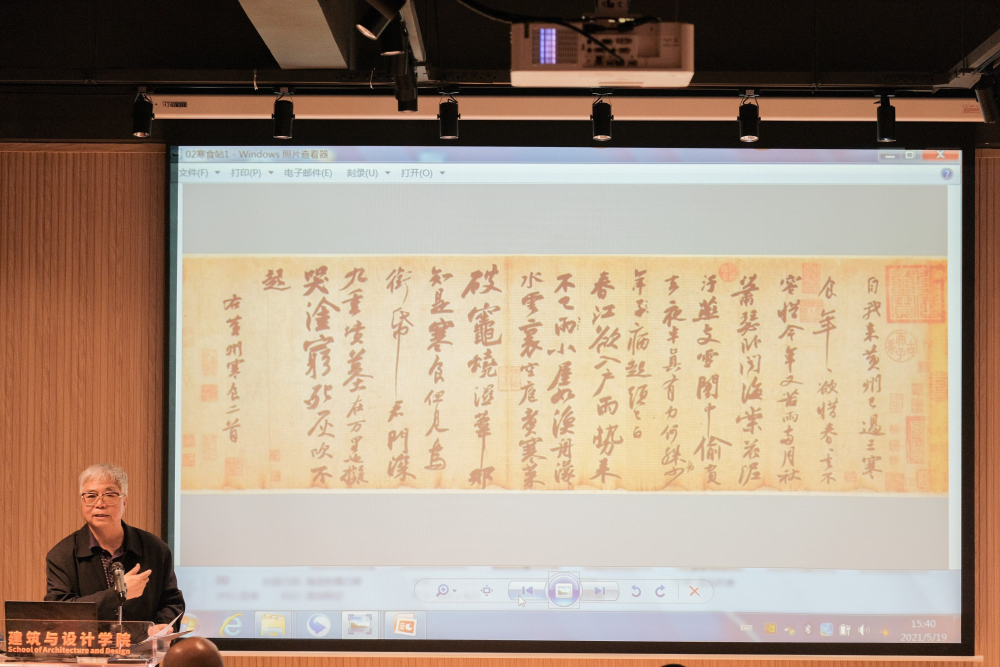 02寒食帖1 - Windows 照片查看器
文件(F) 打印(P) 电子邮件(E) 刻录(U) 打开(O)
自我来黄州已過三寒
食年〻欲惜春〻去不
容惜今年又苦雨兩月秋
蕭瑟卧聞海棠花泥
汙燕支雪闇中偷負
去夜半真有力何殊少
年子病起頭已白
春江欲入户雨勢来
不已雨小屋如漁舟濛〻
水雲裏空庖煮寒菜
破竈燒濕葦那
知是寒食但見烏
銜帋君門深
九重墳墓在万里也擬
哭塗窮死灰吹不
起
右黄州寒食二首
15:40
2021/5/19
建筑与设计学院
School of Architecture and Design